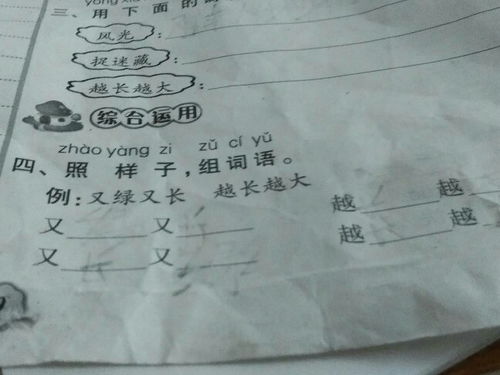 三、用下面的
风光:
捉迷藏:
越长越大:
综合运用
zhào yàng zi zǔ cí yǔ
四、照样子,组词语。
例:又绿又长 越长越大
又______又______ 越______越
又______又______ 越______越